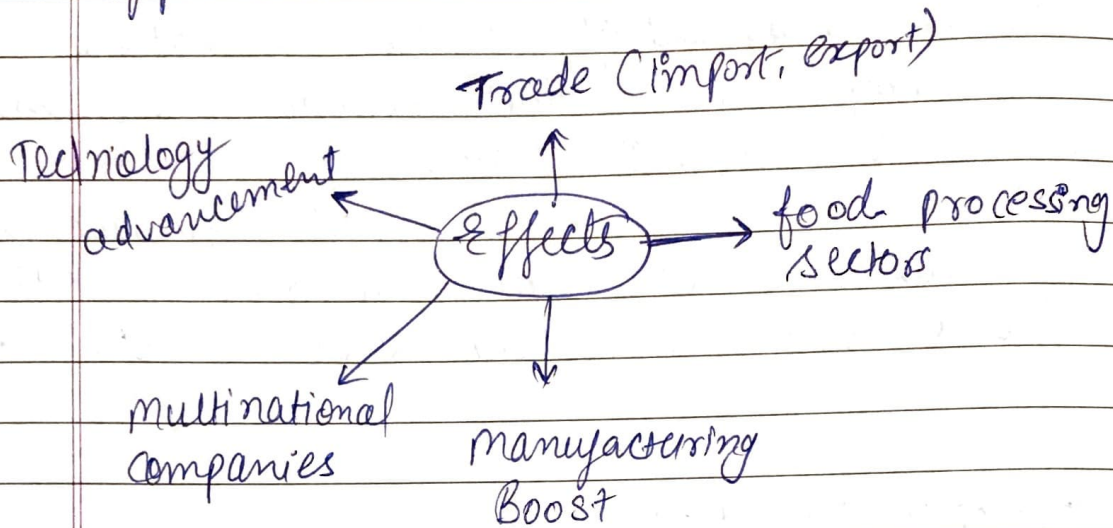 Trade (import, export)
Technology
advancement
Effects
food processing
sectors
multinational
companies
Manufacturing
Boost